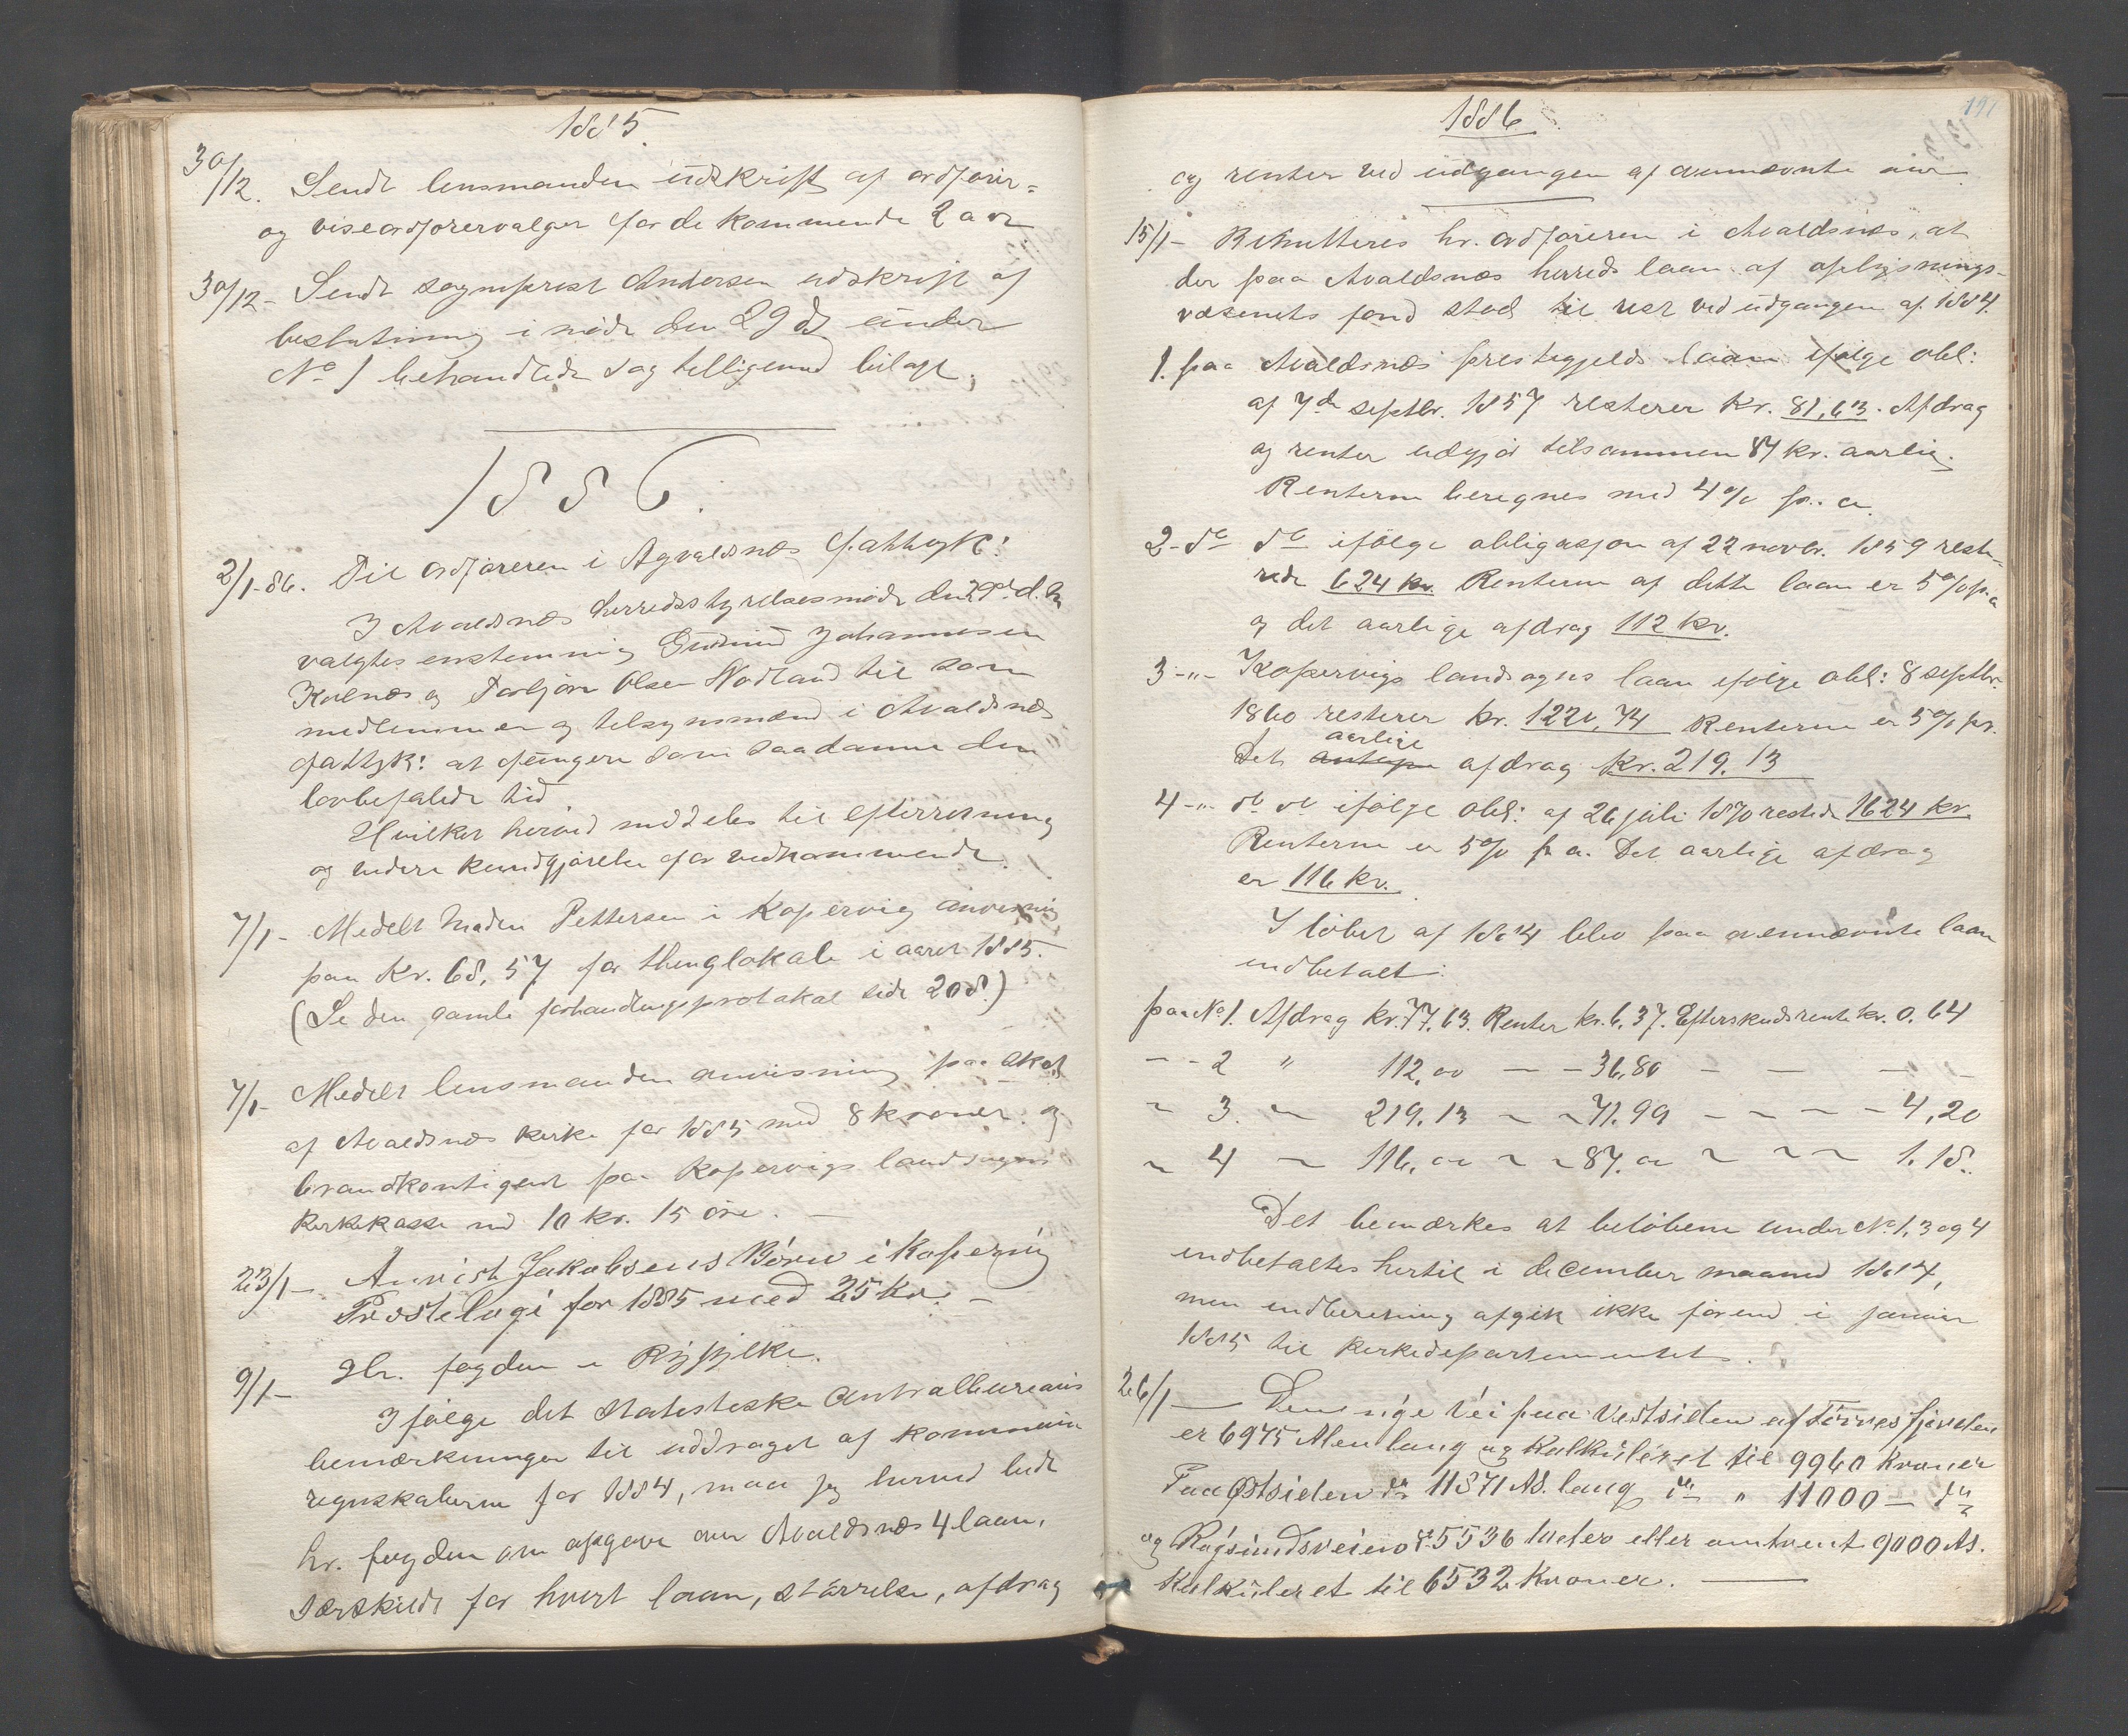 1885.
30/12. Sendt lensmanden udskrift af ordfører-
og viseordførervalgen for de kommende 2 aar
30/12- Sendt sogneprest Andersen udskrift af
beslutning i møde den 29 ds under
No 1 behandlede sag telligemed bilage,
1886.
2/1-86. Til ordføreren i Agvaldsnæs fattigk:
I Avaldsnæs herredsstyrelsesmøde den d. m
valgtes enstemmig Gudmund Johannesen
Kolnæs og Torbjørn Olsen Nodland til som
medlemmer og telsynsmænd i Avaldsnæs
fattigk: at fungere som saadanne den
lovbefalede tid
Hvilket herved meddeles til efterretning
og videre kundgjørelse for vedkommende.
7/1- Medelt Madm Pettersen i Kopervig anvisning
paa Kr. 68,57 for thinglokale i aaret 1885.
(Se den gamle forhandlingsprotokal side 208.)
7/1- Medelt lensmanden anvisning paa
af Avaldsnæs kirke for 1885 med 8 kroner og
brandkontigent paa Kopervigs landsogns
kirkekasse med 10 kr. 15 øre. —
23/1- Anvist Jakobsens Børn i Kopervig
Prestelogi for 1885 med 25 Kr. —
9/1- Hr. fogden i Ryfylke.
Ifølge det statestiske Centralbureaus
bemærkninger til uddraget af kommune
regnskaberne for 1884, maa jeg herved bede
hr. fogden om opgave over Avaldsnæs 4 laan,
særskildt for hvert laan, størrelse, afdrag
1886
191
og renter ved udgangen af ovennævnte aar
15/1- Remitteres hr. ordføreren i Avaldsnæs, at
der paa Avaldsnæs herreds laan af oplysnings-
væsenets fond stod til rest ved udgangen af 1884.
1. paa Avaldsnæs prestegjelds laan ifølge obl:
af 7de septbr. 1857 resterer Kr. 81,63. Afdrag
og renter udgjør tilsammen 84 kr. aarlig.
Renterne beregnes med 4% pr. a.
2- do do ifølge obligasjon af 22 novbr. 1859 reste-
rede 624 kr. Renterne af dette laan er 5% p. a
og det aarlige afdrag 112 kr.
3-„- Kopervigs landsogns laan ifølge obl: 8 septbr.
1860 resterer kr. 1220,74 Renterne er 5% pr.
aarlige
Det afdrag kr. 219.13
4-„- do do ifølge obl: af 26 juli 1870 restede 1624 kr.
Renterne er 5% pr a. Det aarlige afdrag
er 116 kr.
I løbet af 1884 blev paa ovennævnte laan
indbetalt:
paa No 1. Afdrag kr. 77,63. Renter kr. 6,37. Efterskudsrente kr. 0.64
- - 2 " 112,00 — - 36,80 - — — -
~ 3. ~ 219.13 ~ ~ 71.99 - ~ ~ - 4,20
~ 4 ~ 116,00 ~ ~ 87.00 ~ ~ ~ 1.18.
Det bemærkes at beløbene under No. 1, 3 og 4
indbetaltes hertil i december maaned 1884,
men indberetning afgik ikke førend i januar
1885 til kirkedepartementet.
26/1 — Den nye Vei paa Vestsiden af Førresfjorden
er 6975 Alen lang og Kalkuleret til 9960 Kroner
Paa Østsiden do 11871 Al. lang do " 11000 — do
og Røgsundsveien 5536 Meter eller omtrent 9000 Al.
Kalkuleret til 6532 Kroner. —